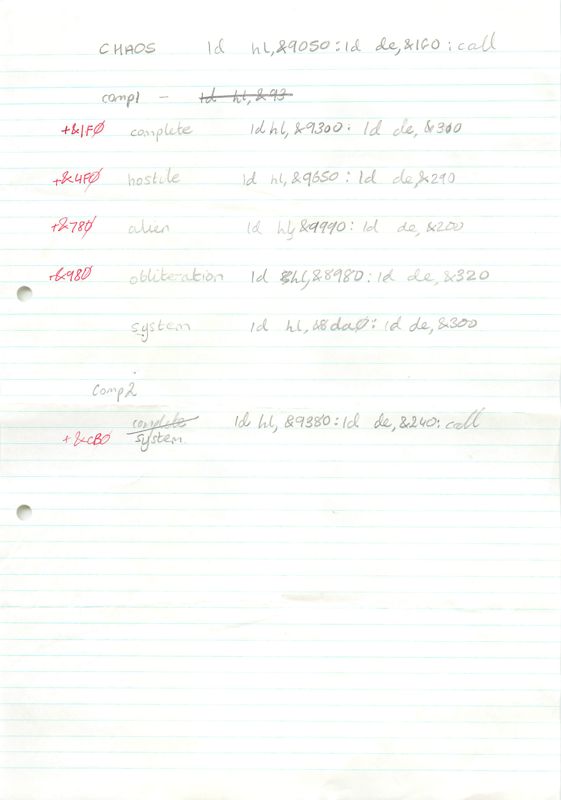 CHAOS ld hl,&9050:ld de,&160:call
comp1 - ld hl,&93
+&1F0 complete ld hl,&9300: ld de,&300
+&4F0 hostile ld hl,&9650: ld de,&290
+&780 alien ld hl,&9990: ld de,&200
+&980 obliteration ld hl,&8980: ld de,&320
system ld hl,&8da0: ld de,&300
Comp2
complete ld hl,&9380:ld de,&240:call
+&CB0 system